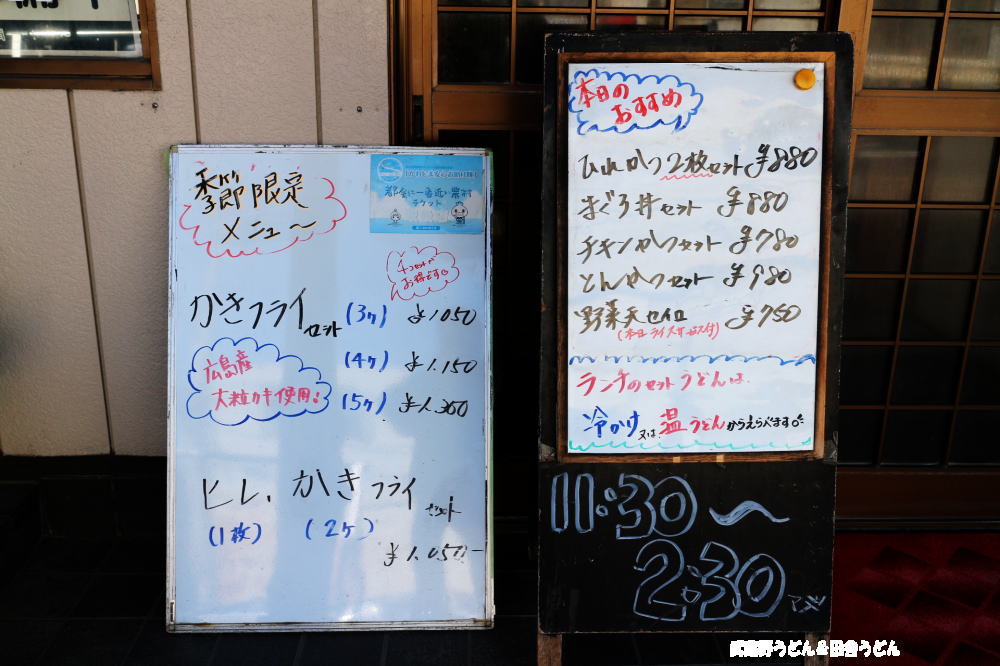 季節限定
メニュー〜
都会に一番近い里村
チケット
4コセットが
お得です。
かきフライセット
(3ケ) ¥1050
(4ケ) ¥1.150
(5ケ) ¥1.300
広島産
大粒カキ使用!
ヒレ、かきフライセット
(1枚) (2ケ)
¥1.050-
本日の
おすすめ
ひれかつ2枚セット ¥880
まぐろ丼セット ¥880
チキンかつセット ¥780
とんかつセット ¥980
野菜天セイロ ¥750
(本日ライス付)
ランチのセットうどんは、
冷かけ又は、温うどんからえらべます。
11:30〜
2:30マデ
武蔵野うどん&田舎うどん